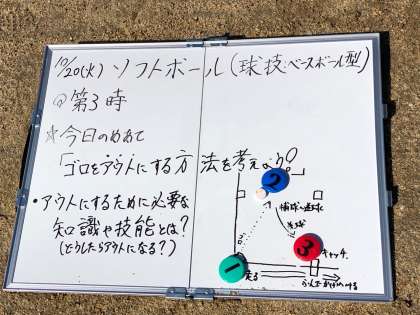 10/20(火) ソフトボール(球技:ベースボール型)
◎第3時
☆今日のめあて
「ゴロをアウトにする方法を考えよう!」
・アウトにするために必要な
知識や技能とは?
(どうしたらアウトになる?)
2
捕球
送球
3
キャッチ
1
走る